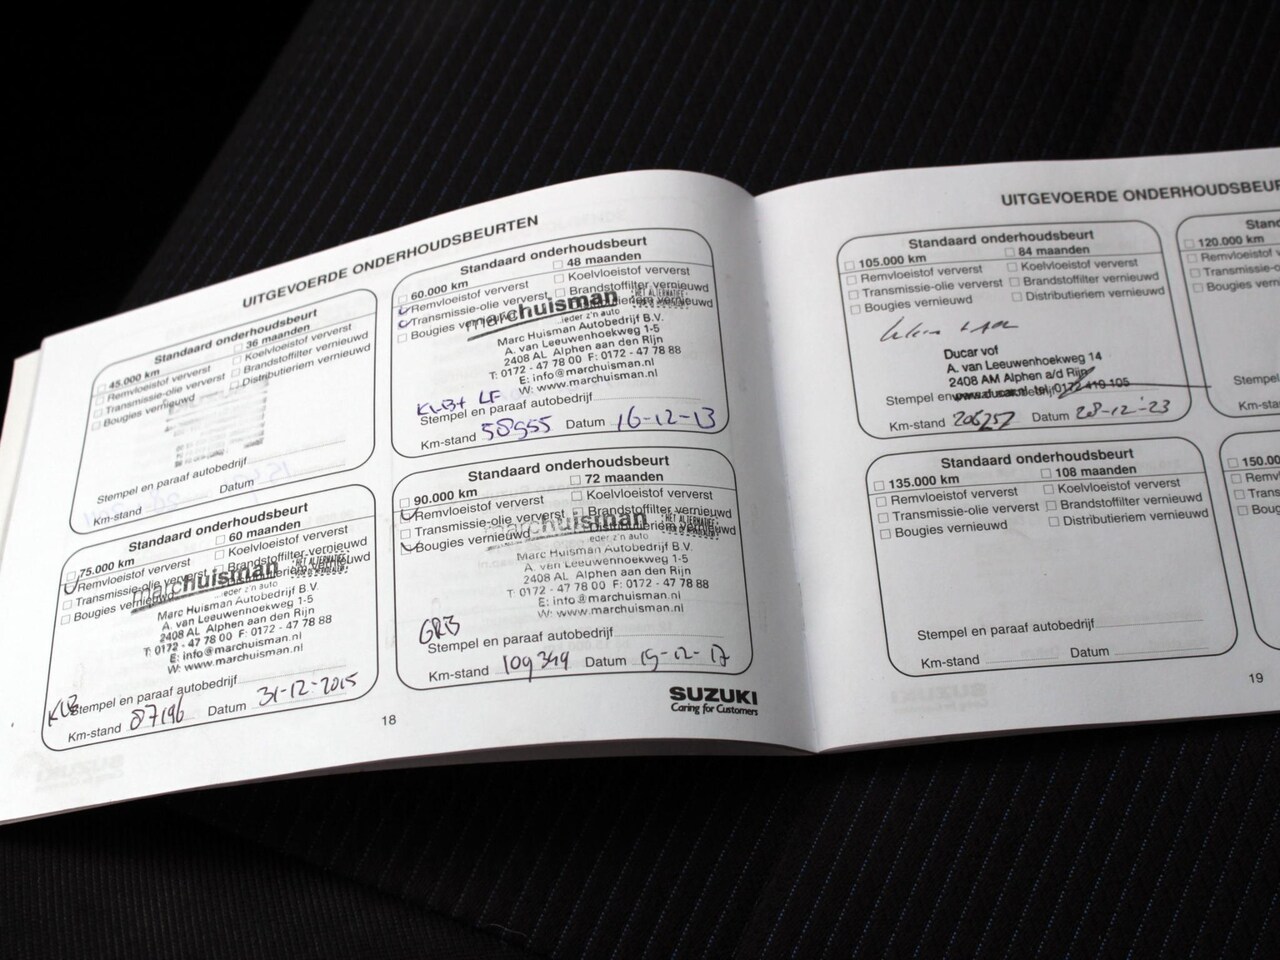 UITGEVOERDE ONDERHOUDSBEURTEN
Standaard onderhoudsbeurt
45.000 km 36 maanden
Remvloeistof ververst Koelvloeistof ververst
Transmissie-olie ververst Brandstoffilter vernieuwd
Bougies vernieuwd Distributieriem vernieuwd
Stempel en paraaf autobedrijf
Km-stand Datum
Standaard onderhoudsbeurt
60.000 km 48 maanden
Remvloeistof ververst Koelvloeistof ververst
Transmissie-olie ververst Brandstoffilter vernieuwd
Bougies vernieuwd Distributieriem vernieuwd
marchuisman HET ALTERNATIEF
ieder z'n auto
Marc Huisman Autobedrijf B.V.
A. van Leeuwenhoekweg 1-5
2408 AL Alphen aan den Rijn
T: 0172 - 47 78 00 F: 0172 - 47 78 88
E: info@marchuisman.nl
W: www.marchuisman.nl
KLB+ LF
Stempel en paraaf autobedrijf
Km-stand 58955 Datum 16-12-13
Standaard onderhoudsbeurt
75.000 km 60 maanden
Remvloeistof ververst Koelvloeistof ververst
Transmissie-olie ververst Brandstoffilter vernieuwd
Bougies vernieuwd Distributieriem vernieuwd
marchuisman HET ALTERNATIEF
ieder z'n auto
Marc Huisman Autobedrijf B.V.
A. van Leeuwenhoekweg 1-5
2408 AL Alphen aan den Rijn
T: 0172 - 47 78 00 F: 0172 - 47 78 88
E: info@marchuisman.nl
W: www.marchuisman.nl
KLB
Stempel en paraaf autobedrijf
Km-stand 87196 Datum 31-12-2015
Standaard onderhoudsbeurt
90.000 km 72 maanden
Remvloeistof ververst Koelvloeistof ververst
Transmissie-olie ververst Brandstoffilter vernieuwd
Bougies vernieuwd Distributieriem vernieuwd
marchuisman HET ALTERNATIEF
ieder z'n auto
Marc Huisman Autobedrijf B.V.
A. van Leeuwenhoekweg 1-5
2408 AL Alphen aan den Rijn
T: 0172 - 47 78 00 F: 0172 - 47 78 88
E: info@marchuisman.nl
W: www.marchuisman.nl
GRB
Stempel en paraaf autobedrijf
Km-stand 109349 Datum 19-12-17
18
SUZUKI
Caring for Customers
UITGEVOERDE ONDERHOUDSBEUR
Standaard onderhoudsbeurt
105.000 km 84 maanden
Remvloeistof ververst Koelvloeistof ververst
Transmissie-olie ververst Brandstoffilter vernieuwd
Bougies vernieuwd Distributieriem vernieuwd
Ducar vof
A. van Leeuwenhoekweg 14
2408 AM Alphen a/d Rijn
www.ducar.nl tel. 0172 419 105
Stempel en
Km-stand 206252 Datum 28-12-'23
Stand
120.000 km
Remvloeistof ver
Transmissie-
Bougies vern
Stempel
Km-sta
Standaard onderhoudsbeurt
135.000 km 108 maanden
Remvloeistof ververst Koelvloeistof ververst
Transmissie-olie ververst Brandstoffilter vernieuwd
Bougies vernieuwd Distributieriem vernieuwd
Stempel en paraaf autobedrijf
Km-stand Datum
150.00
Remv
Trans
Bougi
Stem
Km-
19